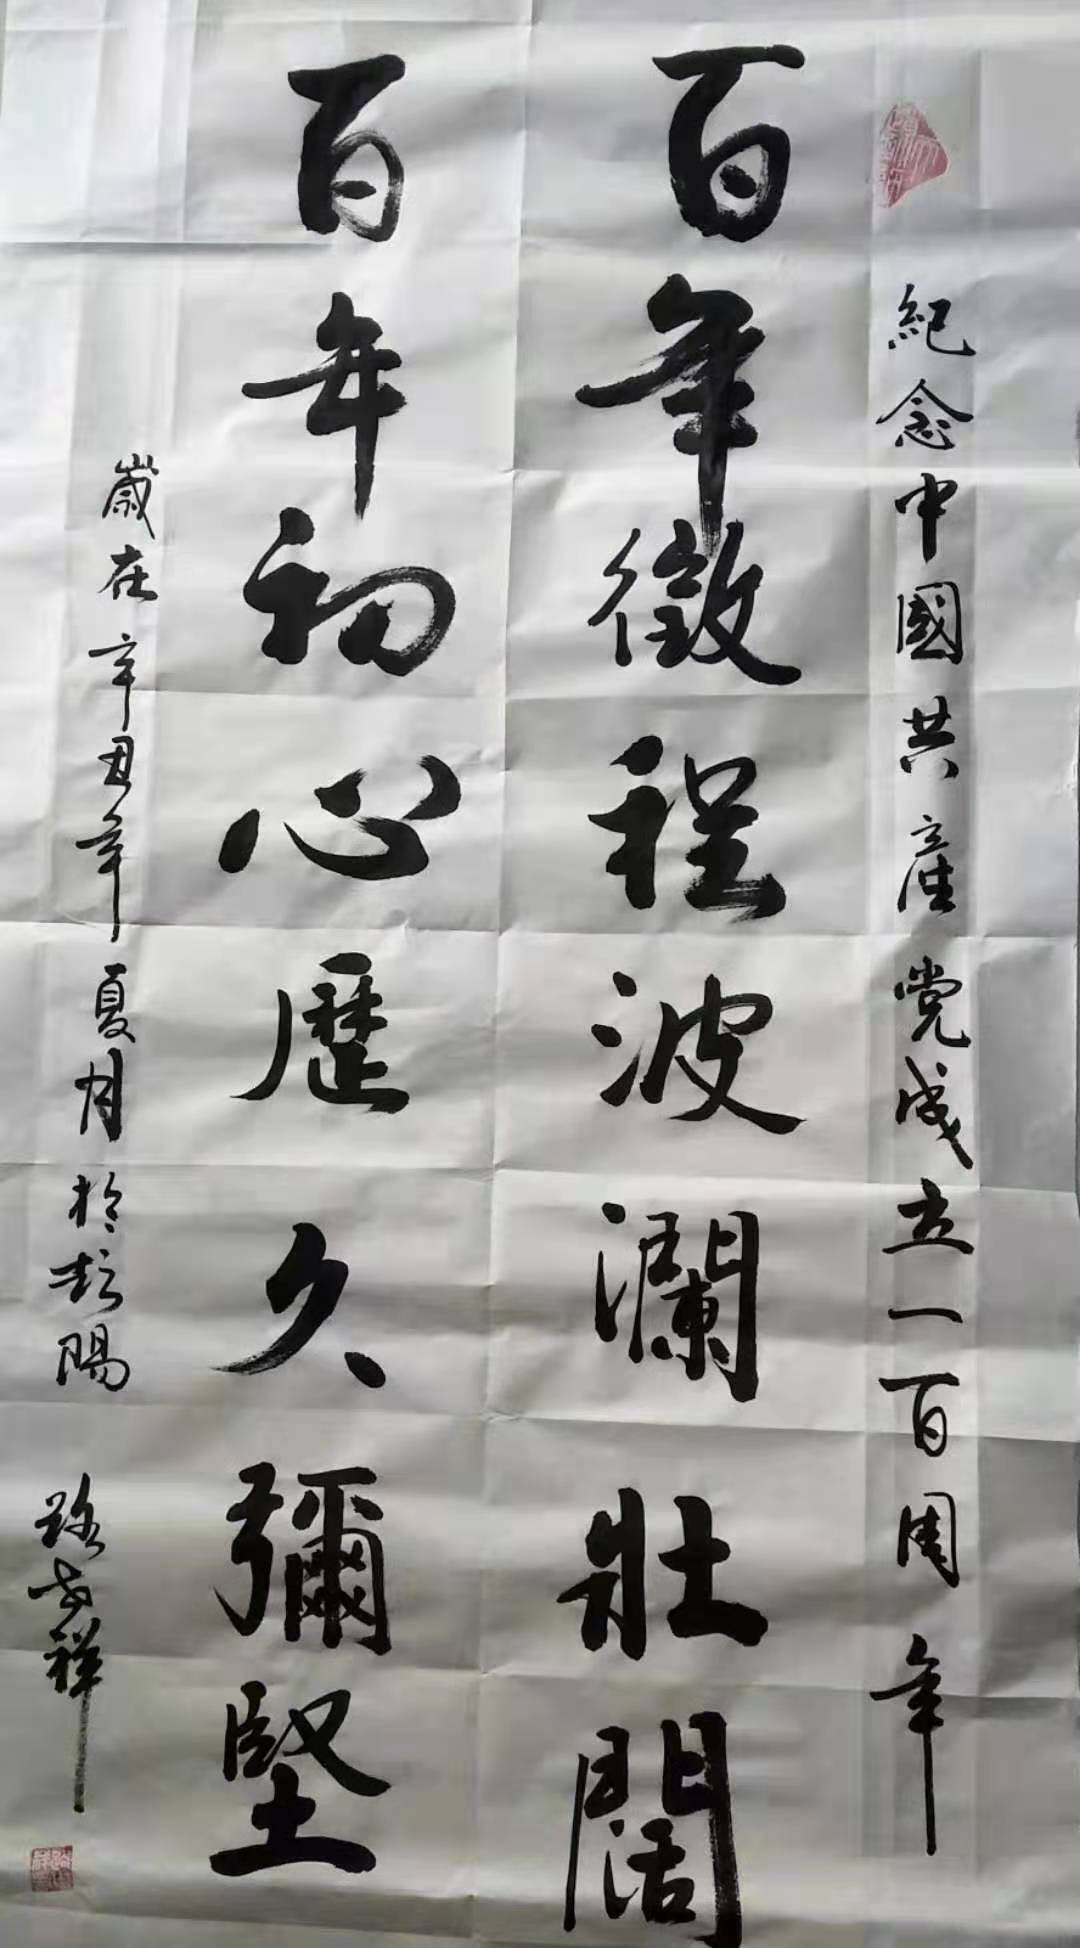 紀念中國共產党成立一百周年
百年徵程波瀾壯闊
百年初心歷久彌堅
歲在辛丑年夏月於彭陽
路志祥